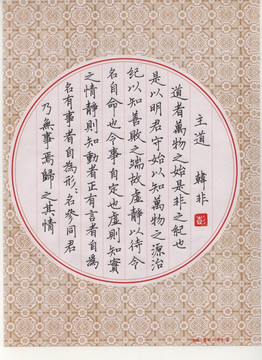 主道 韓非
彭
道者萬物之始是非之紀也
是以明君守始以知萬物之源治
紀以知善敗之端故虛靜以待令
名自命也令事自定也虛則知實
之情靜則知動者正有言者自為
名有事者自為形〻名參同君
乃無事焉歸之其情